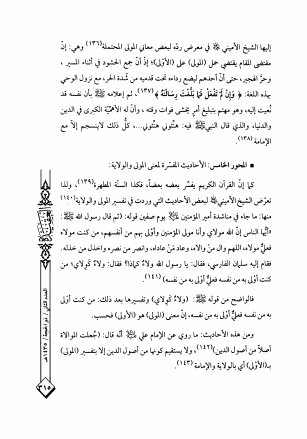 إليها الشيخ الأميني في معرض ردّه لبعض معاني المولى المحتملة(١٣٦) وهي: إنّ
مقتضى المقام يقتضي حمل (المولى) على (الأولى)؛ إذْ أنّ جمع الحشود في أثناء المسير،
وحرّ الهجير، حتى أنّ أحدهم ليضع رداءه تحت قدميه من شدة الحر، مع نزول الوحي
بهذه اللغة: ﴿وَإِن لَّمْ تَفْعَلْ فَمَا بَلَّغْتَ رِسَالَتَهُ﴾(١٣٧)، ثم إعلامه بأن نفسه قد
نُعيت إليه، وهو مهتم بتبليغ أمرٍ يخشى فوات وقته، وأنّ له الأهمّيّة الكبرى في الدين
والدنيا، والذي قال النبي فيه: هنّئوني هنّئوني...، كلّ ذلك لا ينسجم إلاّ مع
الإمامة(١٣٨).
▪ المحور الخامس: الأحاديث المفسّرة لمعنى المولى والولاية:
كما إنّ القرآن الكريم يفسّر بعضه بعضاً، فكذا السنّة المطهرة(١٣٩)، ولذا
تعرّض الشيخ الأميني لبعض الأحاديث التي وردت في تفسير المولى والولاية(١٤٠)
منها: ما جاء في مناشدة أمير المؤمنين يوم صفين قوله: (ثم قال رسول الله:
«أيّها الناس إنّ الله مولاي وأنا مولى المؤمنين وأولى بهم من أنفسهم، من كنت مولاه
فعليٌّ مولاه، اللهم والِ من والاه، وعادِ من عاداه، وانصر من نصره واخذل من خذله.
فقام إليه سلمان الفارسي، فقال: يا رسول الله ولاءٌ كماذا؟ فقال: ولاءٌ كولاي؛ من
كنت أولى به من نفسه فعليٌّ أولى به من نفسه»(١٤١).
فالواضح من قوله: (ولاءٌ كولاي) وتفسيرها بعد ذلك: من كنت أولى
به من نفسه فعليٌّ أولى به من نفسه، إنّ معنى (المولى) هو (الأولى) فحسب.
ومن هذه الأحاديث: ما روي عن الإمام علي أنّه قال: (جُعلت الموالاة
أصلاً من أصول الدين)(١٤٢)، ولا يستقيم كونها من أصول الدين إلاّ بتفسير (المولى)
بـ(الأولى) أي بالولاية والإمامة(١٤٣).
العدد الثاني / ذو الحجة / ١٤٣٥هـ
٣١٥